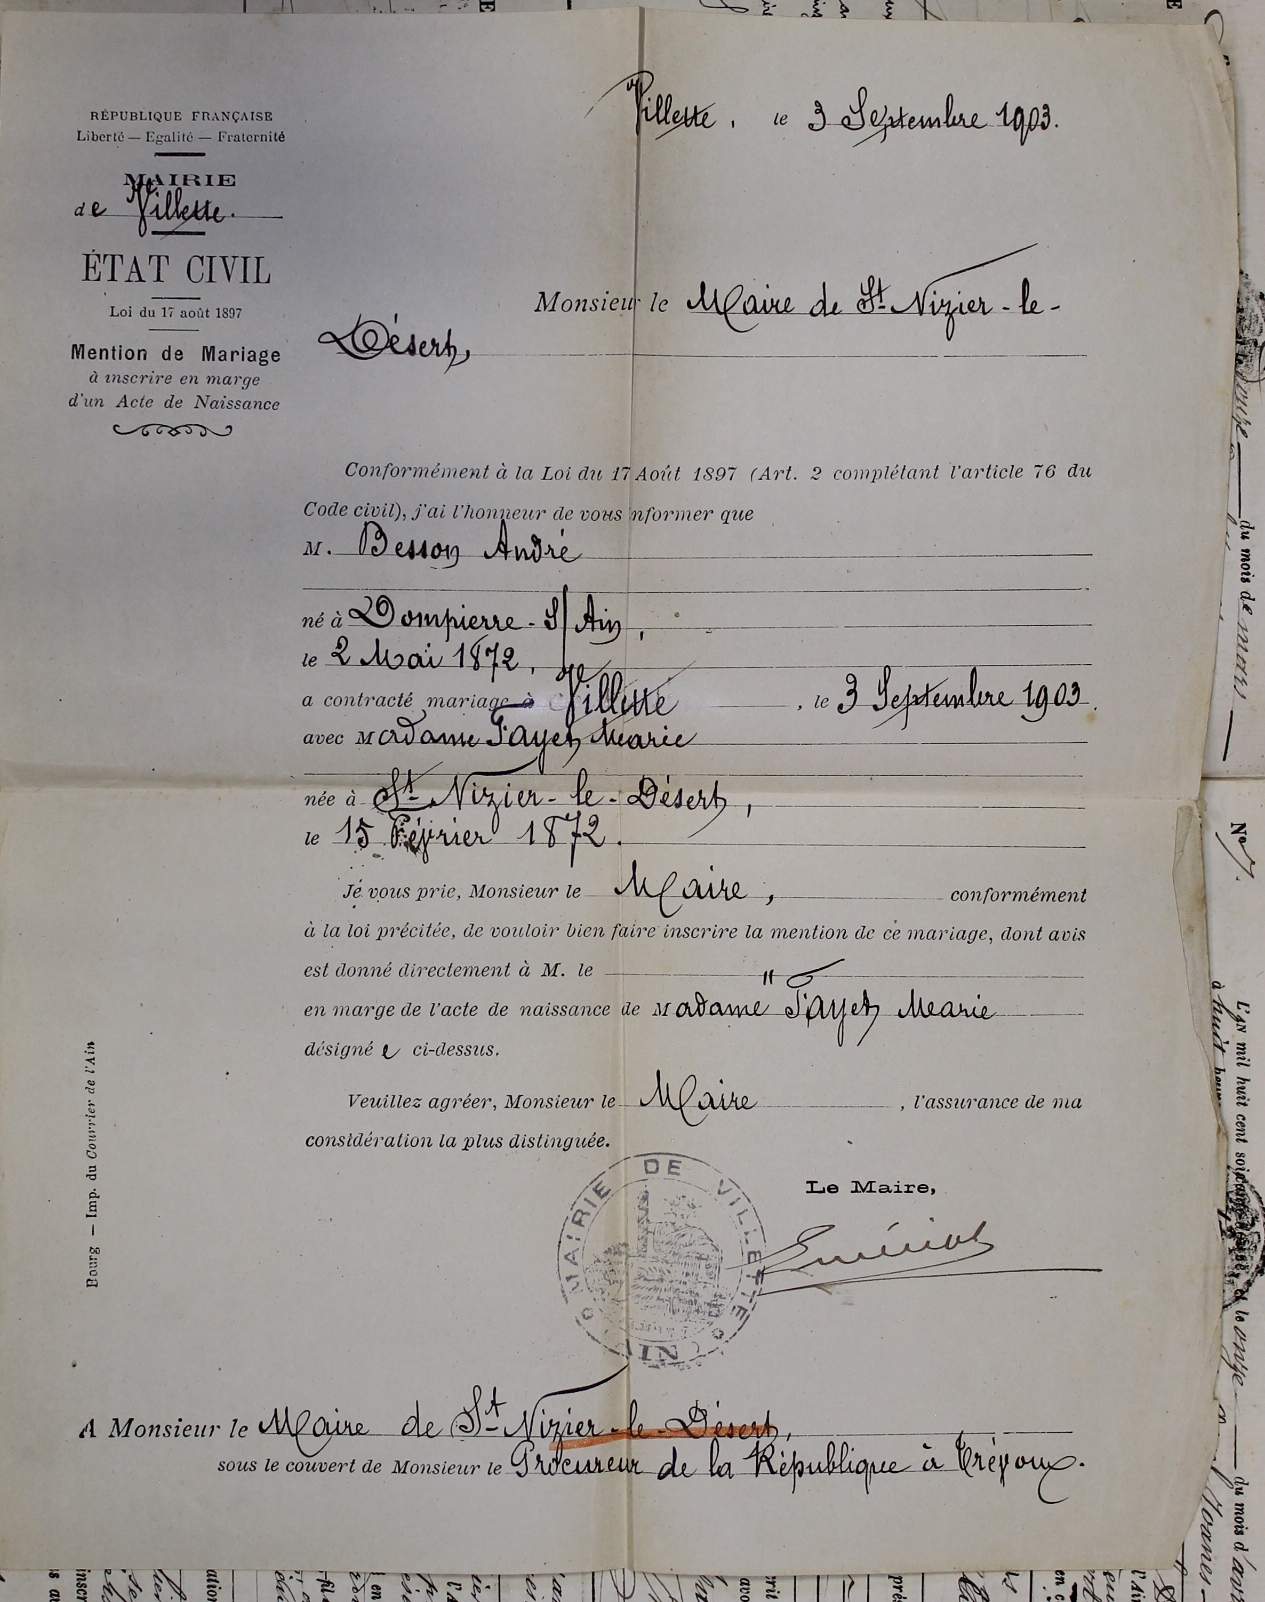 Villette, le 3 Septembre 1903.
RÉPUBLIQUE FRANÇAISE
Liberté — Egalité — Fraternité
MAIRIE
de Villette.
ÉTAT CIVIL
Loi du 17 août 1897
Mention de Mariage
à inscrire en marge
d'un Acte de Naissance
Monsieur le Maire de St Nizier-le-
Désert,
Conformément à la Loi du 17 Août 1897 (Art. 2 complétant l'article 76 du
Code civil), j'ai l'honneur de vous informer que
M. Besson André
né à Dompierre-S/Ain,
le 2 Mai 1872,
a contracté mariage à Villette, le 3 Septembre 1903.
avec Madame Fayet Marie
née à St Nizier-le-Désert,
le 15 Février 1872.
Je vous prie, Monsieur le Maire, conformément
à la loi précitée, de vouloir bien faire inscrire la mention de ce mariage, dont avis
est donné directement à M. le "
en marge de l'acte de naissance de Madame Fayet Marie
désignée ci-dessus.
Veuillez agréer, Monsieur le Maire, l'assurance de ma
considération la plus distinguée.
Le Maire,
MAIRIE DE VILLETTE
(AIN)
A Monsieur le Maire de St Nizier-le-Désert,
sous le couvert de Monsieur le Procureur de la République à Trévoux.
Bourg — Imp. du Courrier de l'Ain
du mois de mars
No 7.
L'AN mil huit cent
à huit
le onze
du mois d'avr